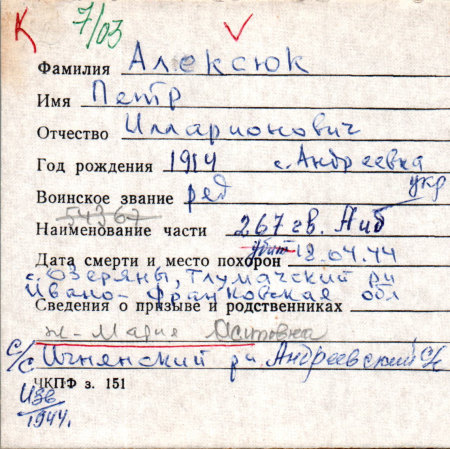 К 7/03
Фамилия Алексюк
Имя Петр
Отчество Илларионович
Год рождения 1914 с. Андреевка
укр
Воинское звание ряд
54367
Наименование части 267 гв. Апб
убит 12.04.44
Дата смерти и место похорон
с. Озеряны, Тлумачский р-н
Ивано-Франковская обл
Сведения о призыве и родственниках
ж-Мария Осиповна
с/с Ичнянский р-н, Андреевский с/с
ЧКПФ з. 151
Изв
1944г.